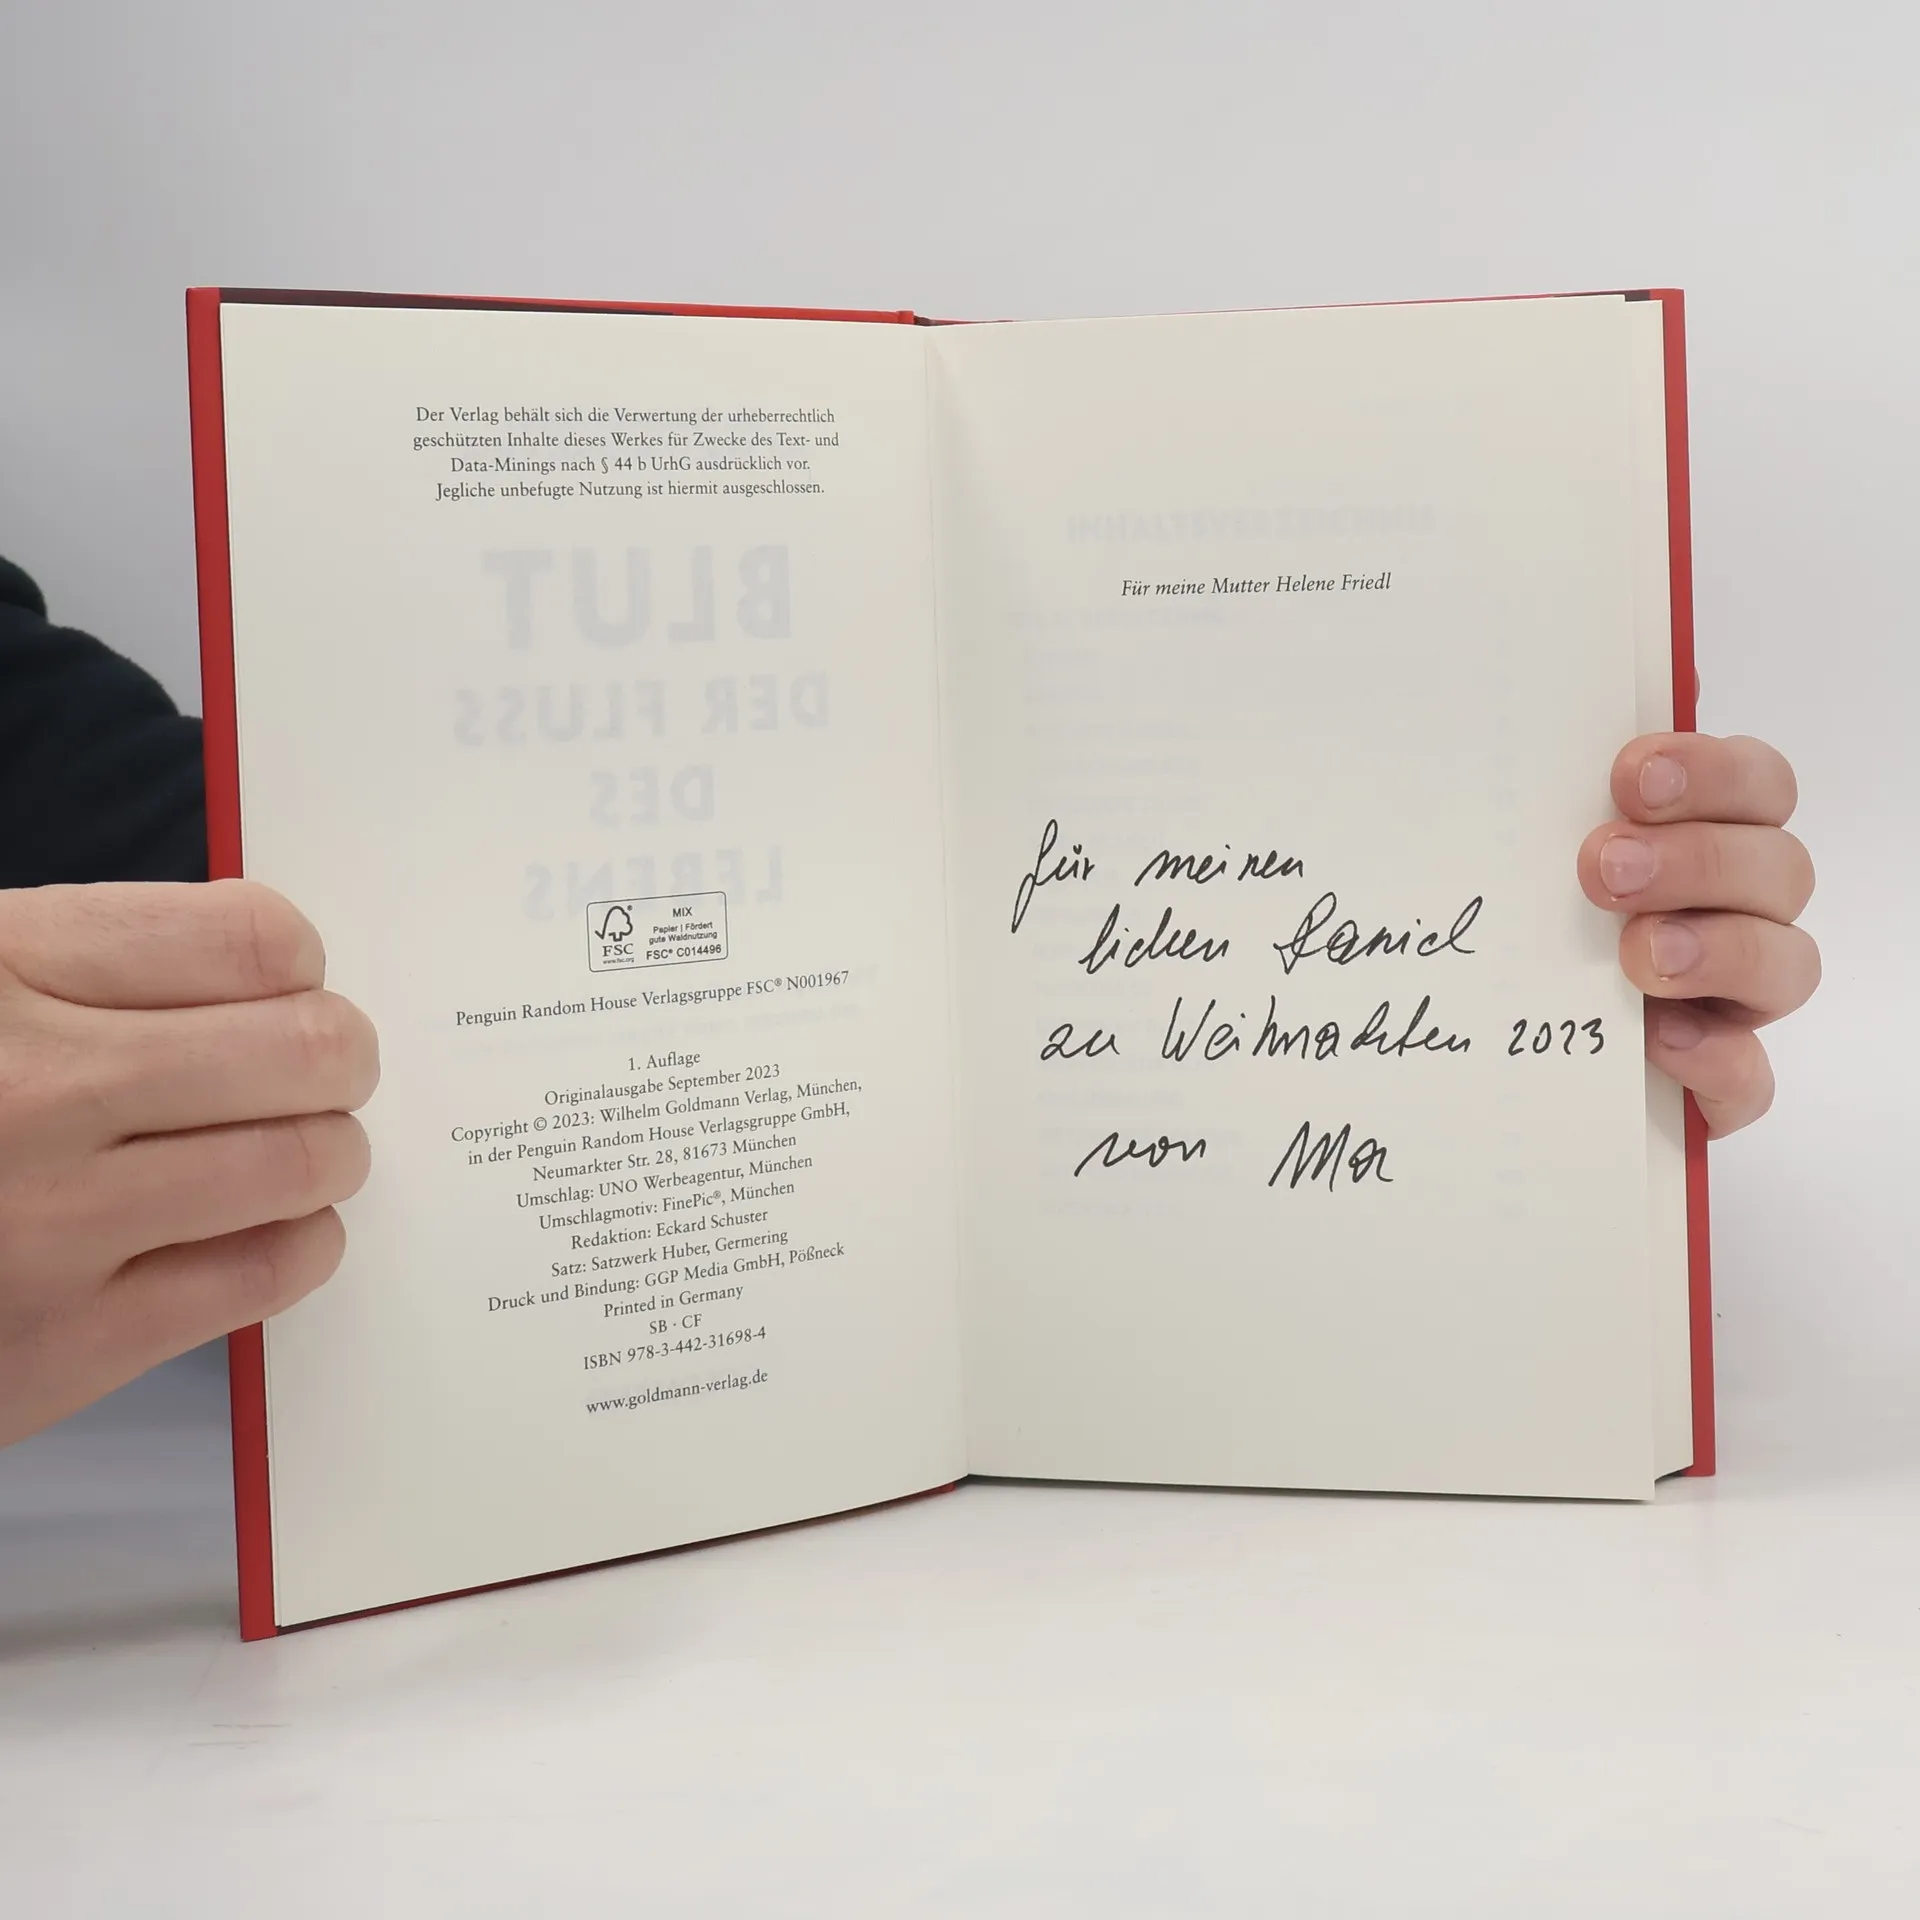 Der Verlag behält sich die Verwertung der urheberrechtlich
geschützten Inhalte dieses Werkes für Zwecke des Text- und
Data-Minings nach § 44 b UrhG ausdrücklich vor.
Jegliche unbefugte Nutzung ist hiermit ausgeschlossen.
BLUT
DER FLUSS
DES
LEBENS
MIX
Papier | Fördert
gute Waldnutzung
FSC® C014496
FSC
www.fsc.org
Penguin Random House Verlagsgruppe FSC® N001967
1. Auflage
Originalausgabe September 2023
Copyright © 2023: Wilhelm Goldmann Verlag, München,
in der Penguin Random House Verlagsgruppe GmbH,
Neumarkter Str. 28, 81673 München
Umschlag: UNO Werbeagentur, München
Umschlagmotiv: FinePic®, München
Redaktion: Eckard Schuster
Satz: Satzwerk Huber, Germering
Druck und Bindung: GGP Media GmbH, Pößneck
Printed in Germany
SB · CF
ISBN 978-3-442-31698-4
www.goldmann-verlag.de
INHALTSVERZEICHNIS
Für meine Mutter Helene Friedl
für meinen
lieben Daniel
zu Weihnachten 2023
von Ma